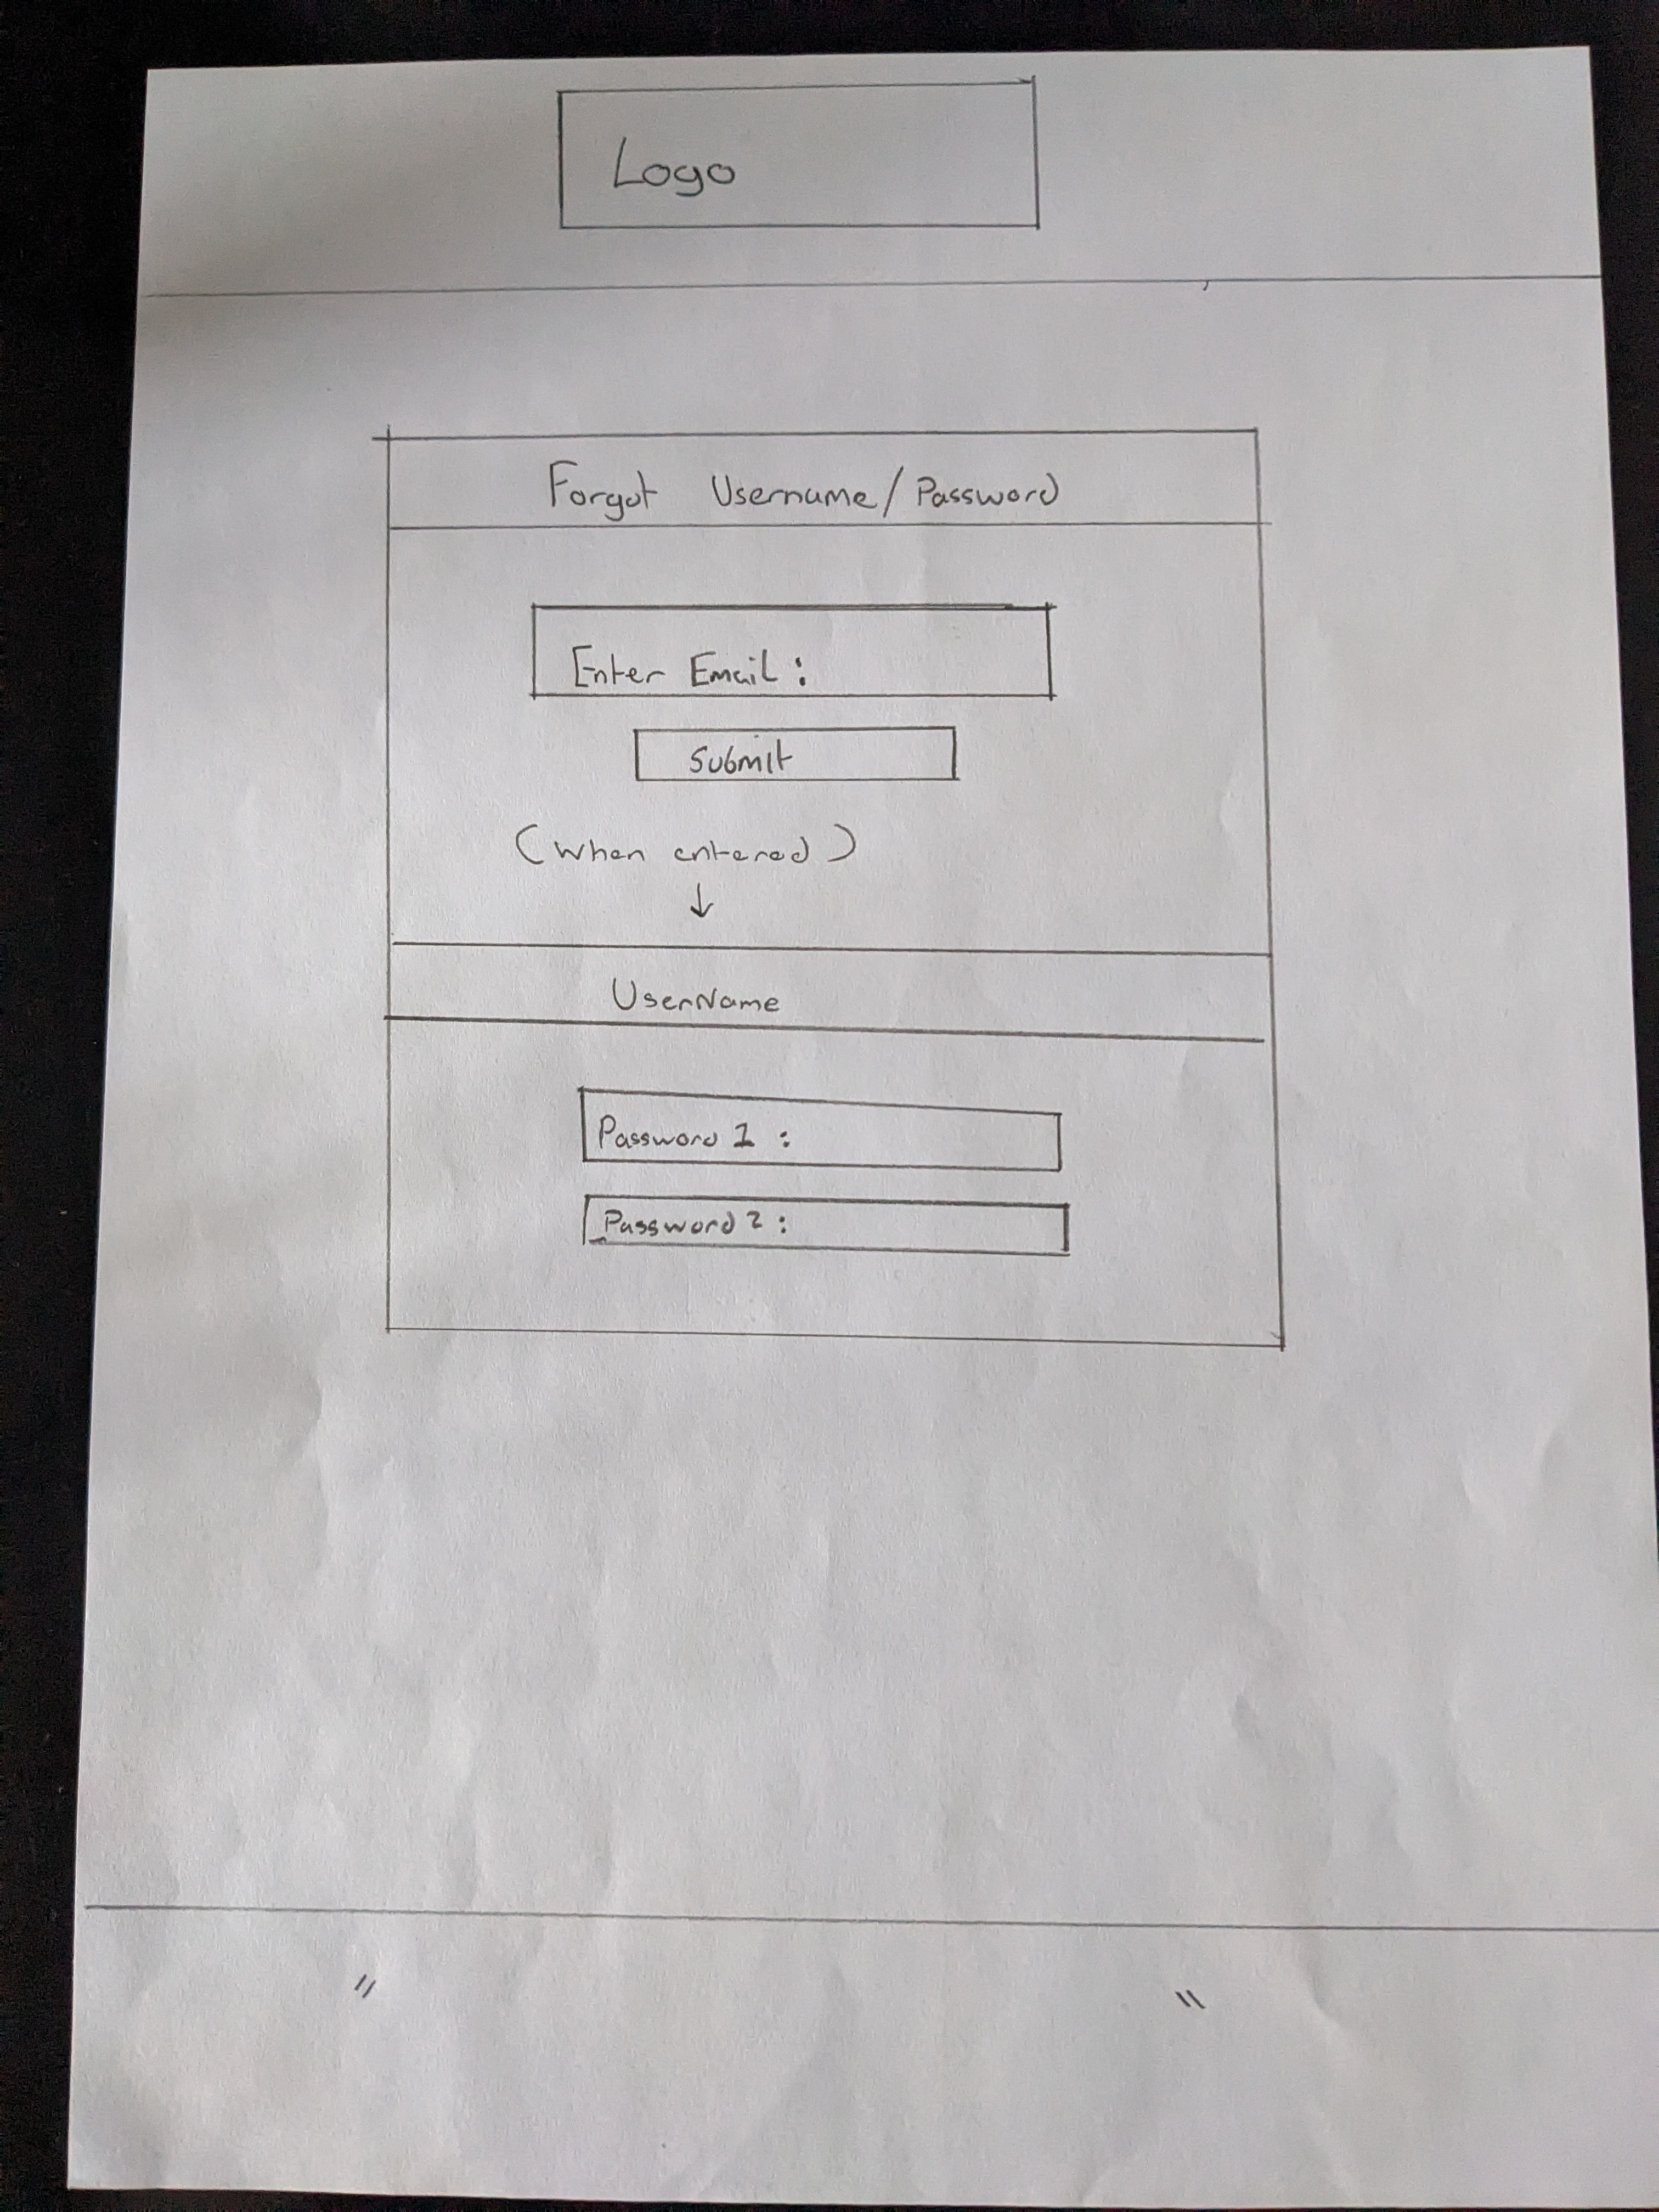 Logo
Forgot Username/Password
Enter Email:
Submit
(when entered)
↓
UserName
Password 1 :
Password 2 :
" "